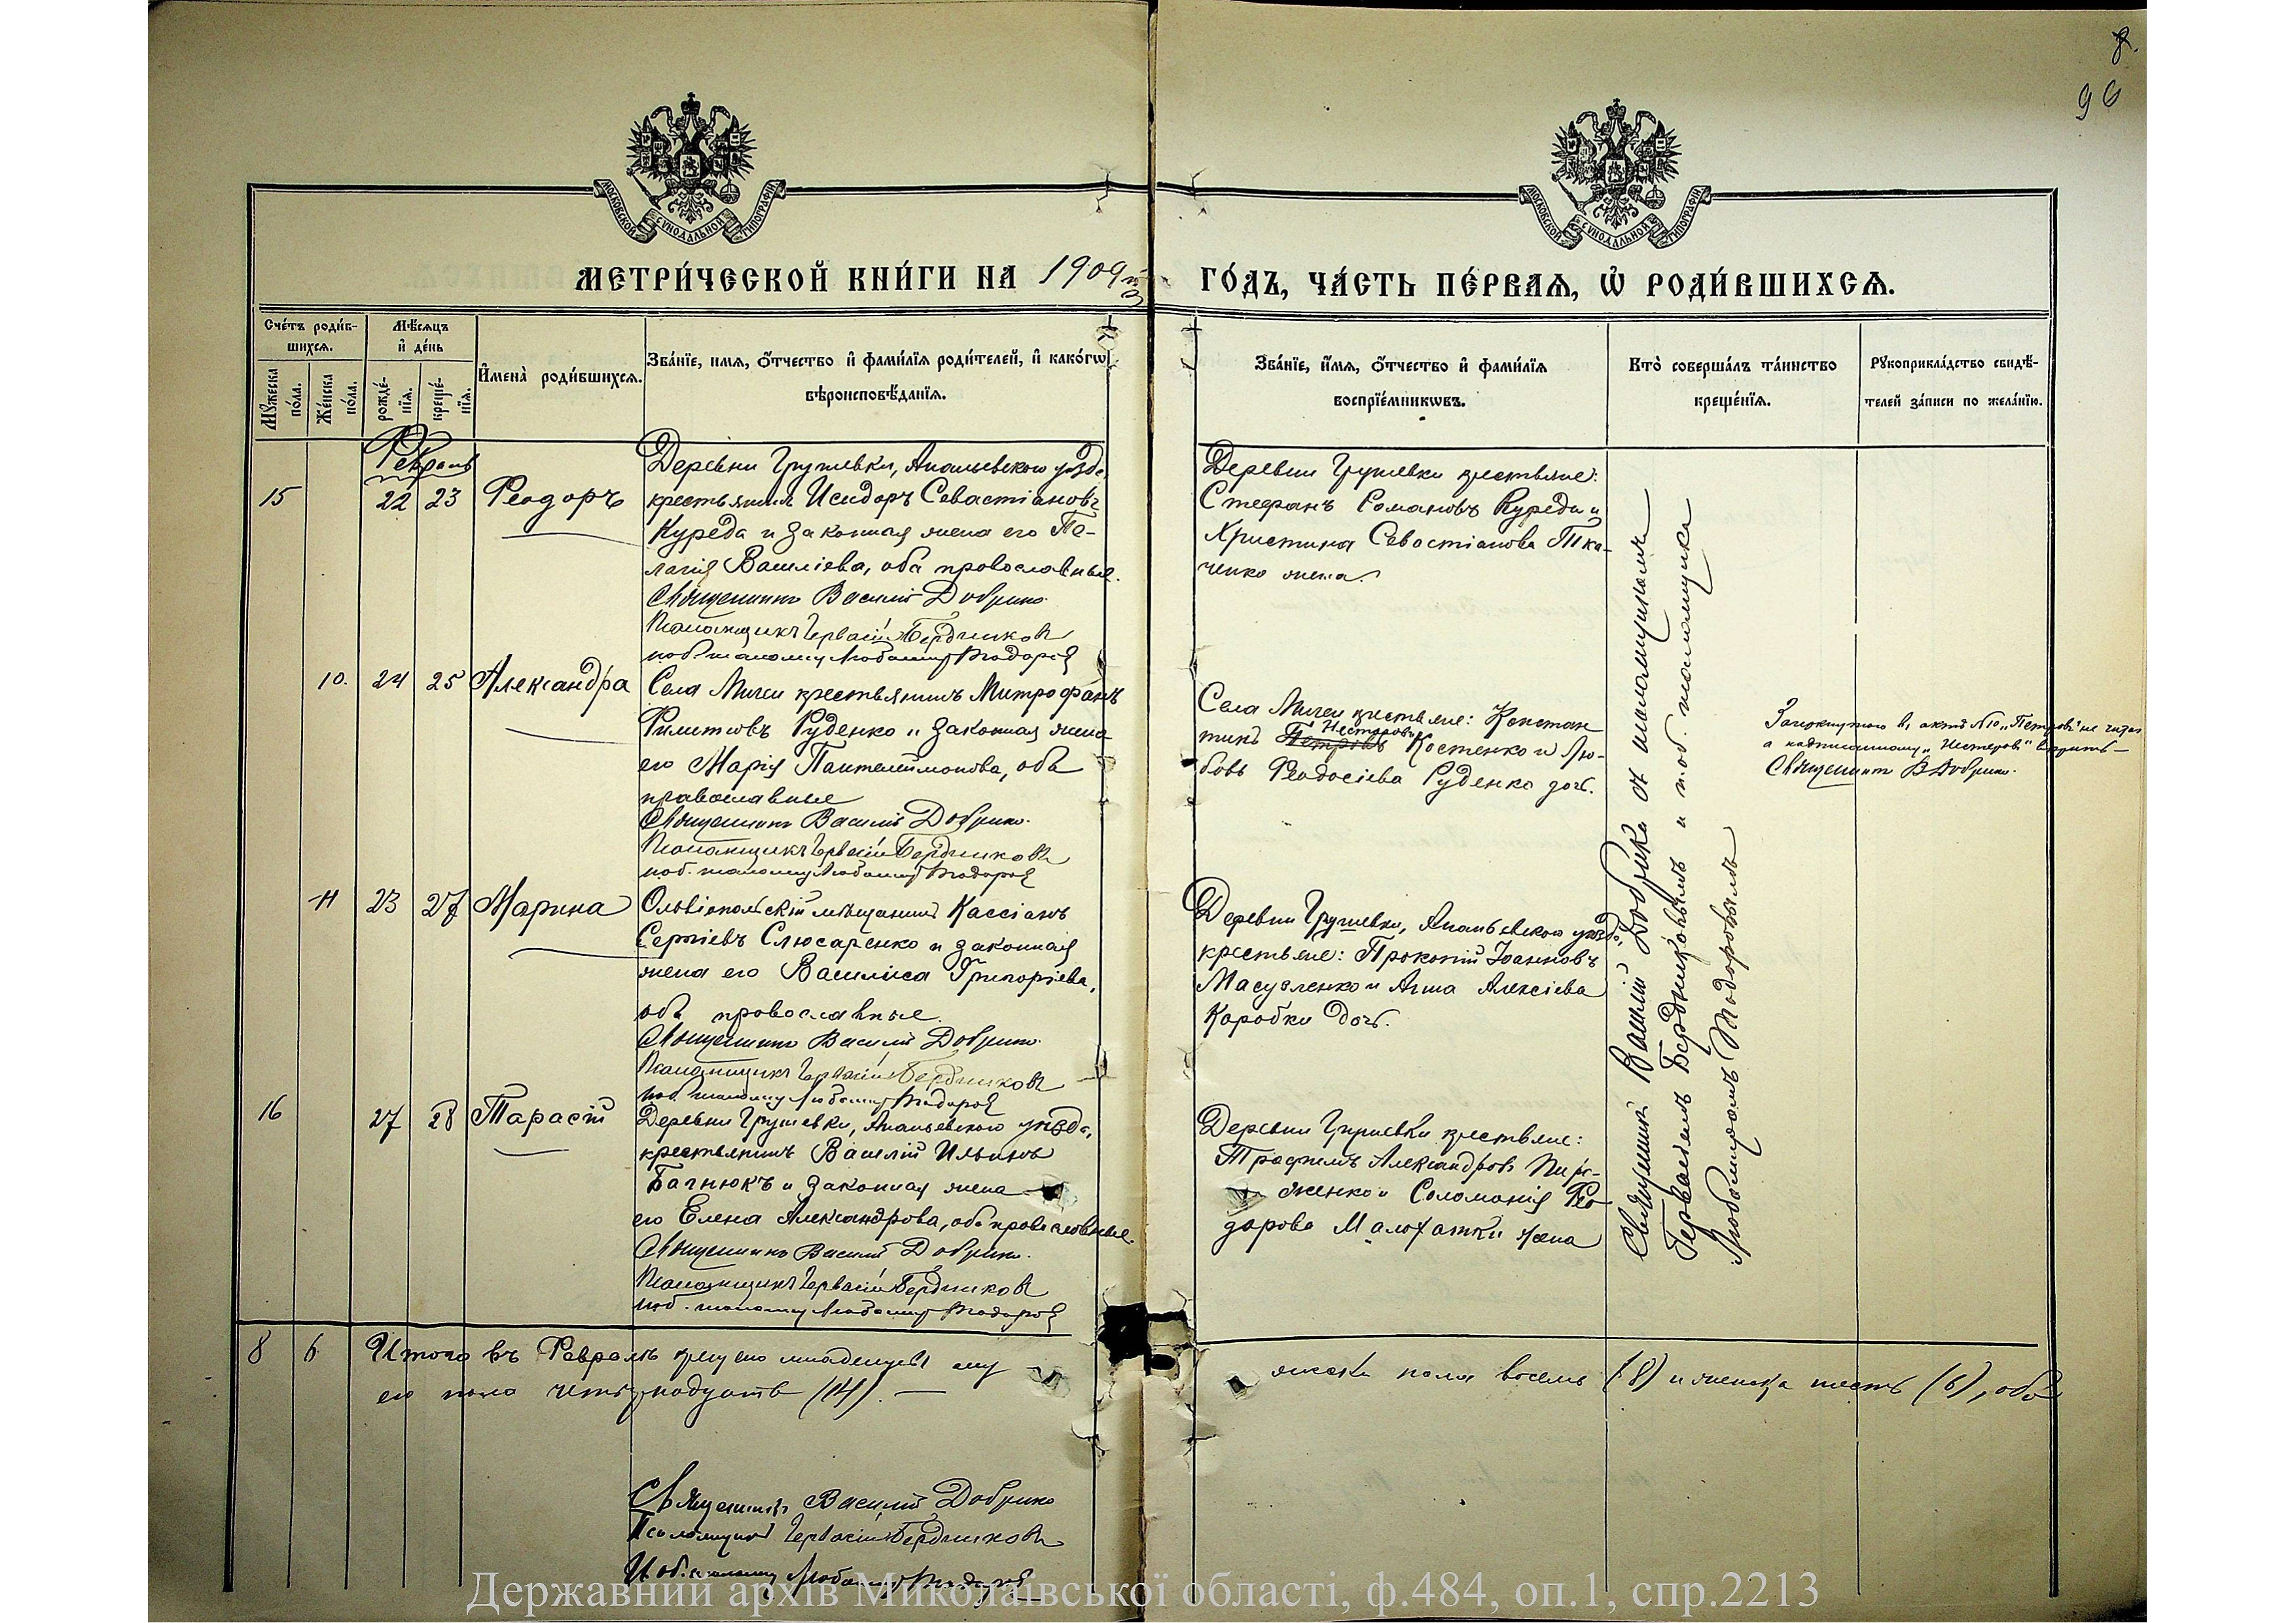 8.
96
МОСКОВСКОЙ СУНОДАЛЬНОЙ ТИПОГРАФІИ
МОСКОВСКОЙ СУНОДАЛЬНОЙ ТИПОГРАФІИ
МЕТРИ́ЧЕСКОЙ КНИ́ГИ НА 1909й
ГО́ДЪ, ЧА́СТЬ ПЕ́РВАѦ, Ѡ҆ РОДИ́ВШИХСѦ.
Сче́тъ роди́в-
шихсѧ.
Мꙋ́жеска
по́ла.
Же́нска
по́ла.
Мѣ́сѧцъ
и҆ де́нь
рожде́-
нїѧ.
креще́-
нїѧ.
И҆мена̀ роди́вшихсѧ.
Зва́нїе, имѧ, ѻ҆́тчество и҆ фами́лїѧ роди́телей, и҆ како́гѡ
вѣроисповѣ́данїѧ.
Зва́нїе, и҆́мѧ, ѻ҆́тчество и҆ фами́лїѧ
воспрїе́мникѡвъ.
Кто̀ соверша́лъ та́инство
креще́нїѧ.
Рꙋкоприкла́дство свидѣ́-
телей за́писи по жела́нїю.
Февраль
15
22
23
Феодоръ
Деревни Грушевки, Ананьевскаго уѣзда,
крестьянинъ Исидоръ Севастіановъ
Куреда и законная жена его Пе-
лагія Василіева, оба православные.
Священникъ Василій Добрика
Псаломщикъ Гервасій Бердниковъ
и об. псаломщ. Любомиръ Тодоровъ
Деревни Грушевки крестьяне:
Стефанъ Романовъ Куреда и
Христина Севостіанова Тка-
ченко жена.
10.
24
25
Александра
Села Мигеи крестьянинъ Митрофанъ
Руденко и законная жена
его Марія Пантелеймонова, оба
православные
Священникъ Василій Добрика
Псаломщикъ Гервасій Бердниковъ
и об. псаломщ. Любомиръ Тодоровъ
Села Мигеи крестьяне: Констан
Нестеровъ
тинъ Петровъ Костенко и Лю-
бовь Феодосіева Руденко дочь.
Зачеркнутаго въ актѣ №10 "Петровъ" не читать
а надписанному "Нестеровъ" вѣрить —
Священникъ В. Добрика
11
23
27
Марина
Ольвіопольскій мѣщанинъ Кассіанъ
Сергіевъ Слюсаренко и законная
жена его Василиса Григоріева,
оба православные.
Священникъ Василій Добрика
Псаломщикъ Гервасій Бердниковъ
и об. псаломщ. Любомиръ Тодоровъ
Деревни Грушевки, Ананьевскаго уѣзда,
крестьяне: Прокопій Іоанновъ
и Анна Алексіева
Коробки дочь.
16
27
28
Тарасій
Деревни Грушевки, Ананьевскаго уѣзда,
крестьянинъ Василій Ильинъ
Багнюкъ и законная жена
его Елена Александрова, оба православные.
Священникъ Василій Добрика
Псаломщикъ Гервасій Бердниковъ
и об. псаломщ. Любомиръ Тодоровъ
Деревни Грушевки крестьяне:
Трофимъ Александровъ
и Соломонія Фео-
дорова жена
Священникъ Василій Добрика съ псаломщикомъ
Гервасіемъ Бердниковымъ и и.об. псаломщика
Любомиромъ Тодоровымъ
8
6
Итого въ Февралѣ крещено младенцевъ му
жеска пола восемь (8) и женска шесть (6), обо
его пола четырнадцать (14). —
Священникъ Василій Добрика
Псаломщикъ Гервасій Бердниковъ
И об. псаломщ. Любомиръ Тодоровъ
Державний архів Миколаївської області, ф.484, оп.1, спр.2213